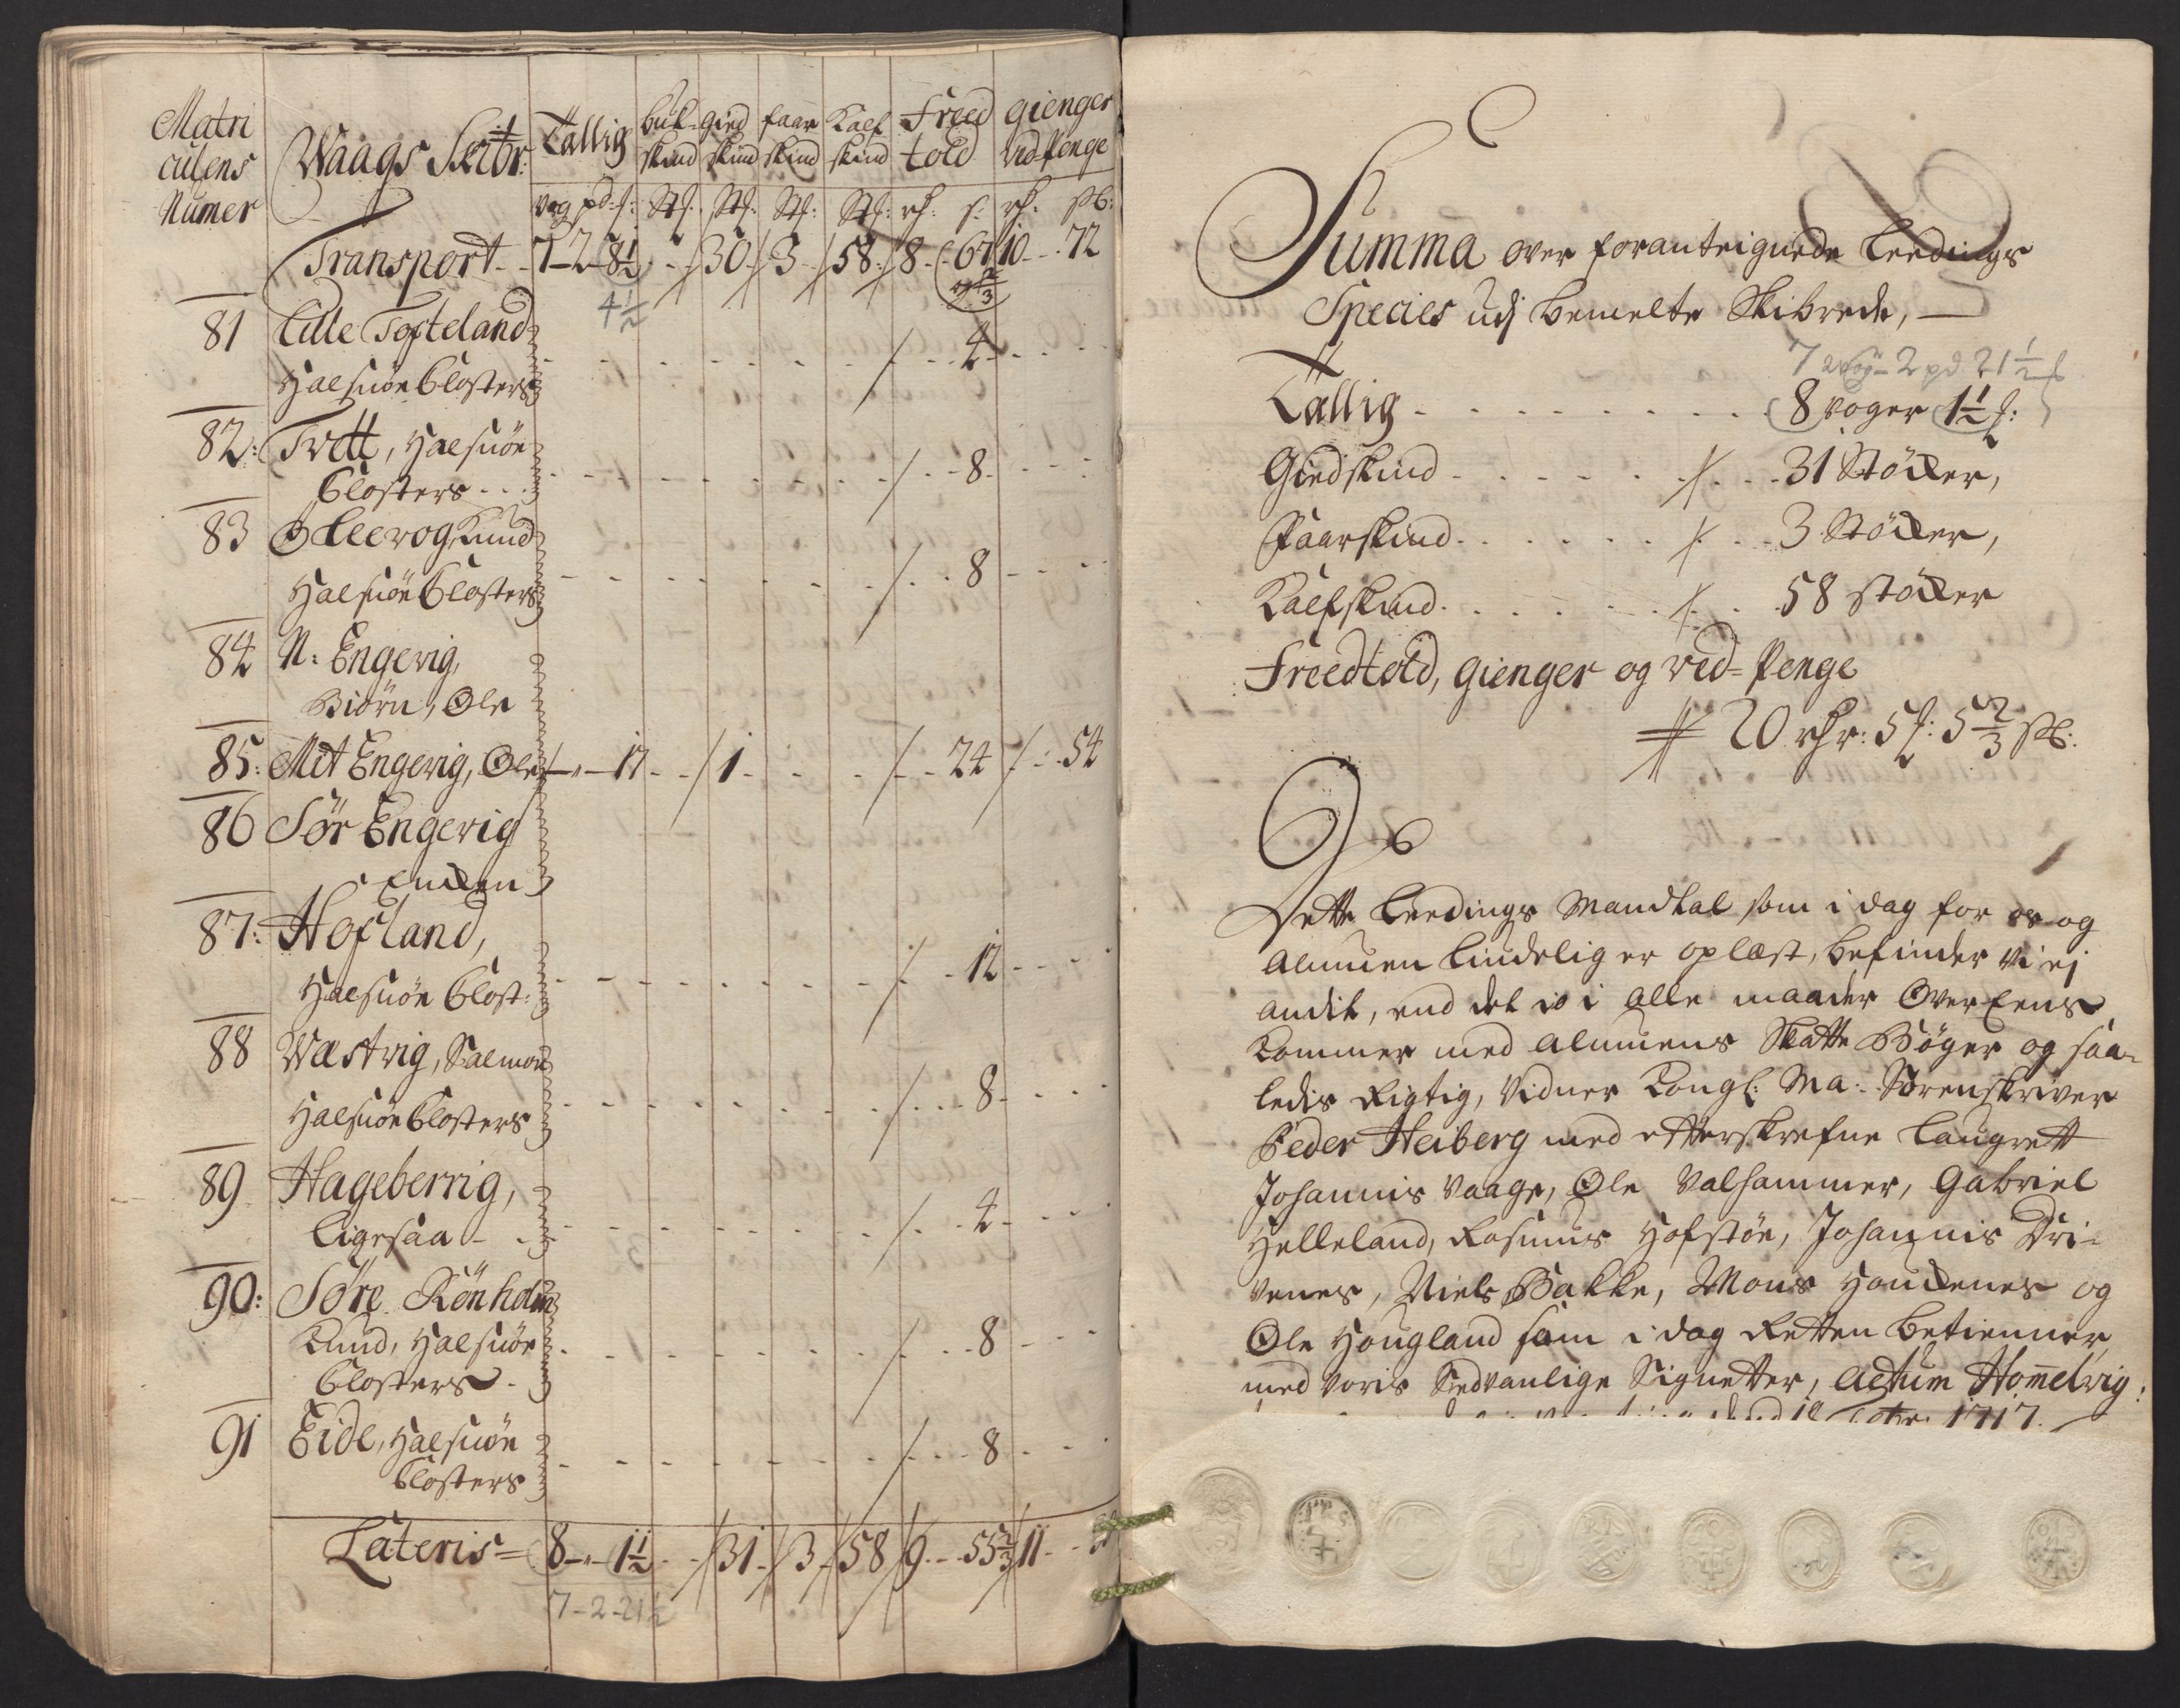 Matri
culens
Numer
Waags Skibr:
Tallig
buk-
skind
gied
skind
faar
skind
Kalf
skind
Freed
told
gienger
ved-Penge
vog pd f:
Stk:
Stk:
Stk:
Stk:
rh: s:
rh: sk:
Transport - - 7-2-8½ - 30 - 3 58 8 - 67 10 - - 72
4½
⅔
81 Lille Tofteland
Halsnön Closters - - - - - - - 4 - - -
82: Tvett, Halsnön
Closters - - - - - - - 8 - - -
83 Kleevog, Knud
Halsnön Closters - - - - - - - 8 - - -
84 N: Engevig,
Biörn, Ole
85: Mit Engevig, Ole - " - 17 - - 1 - - - - - 24 - - 54
86 Sör Engevig
Enken
87: Hofland,
Halsnön Clost: - - - - - - - 12 - - -
88 Wæstvig, Salmon
Halsnön Closters - - - - - - - 8 - - -
89 Hageberrig,
Ligesaa - - - - - - - 4 - - -
90: Söre Rönholm
Knud, Halsnön
Closters - - - - - - - 8 - - -
91 Eide, Halsnön
Closters - - - - - - - 8 - - -
Lateris = 8 - " - 1½ - - 31 - 3 - 58 9 - - 55⅔ 11 - -
7 - 2 - 21½
Summa over foranteignede Leedings
Species udj bemelte Skibrede, —
7 Wog - 2 pd 21½ f
Tallig - - - - - - - - - 8 voger 1½ f:
Giedskind - - - - - - - 31 Stöcker,
Faarskind - - - - - - - 3 Stöcker,
Kalfskind - - - - - - - 58 stöcker
Freedtold, gienger og ved-Penge
20 rhr: 5 f: 5⅔ sk:
Dette Leedings Mandtal som i dag for os og
Almuen lindelig er oplæst, befinder vi ej
andit, end det io i alle maader Over Eens
Kommer med Almuens Skatte Böger og saa-
ledis Rigtig, Vidner Kongl: Ma: Sorenskriver
Peder Heiberg med etterskrefne Laugrett
Johannis Vaage, Ole Valhammer, Gabriel
Helleland, Rasmus Hofstön, Johannis Dri-
venes, Niels Bakke, Mons Houckenes og
Ole Hougland som i dag Retten betienner,
med voris Sedvanlige Signetter, Actum Homelvig:
1717.